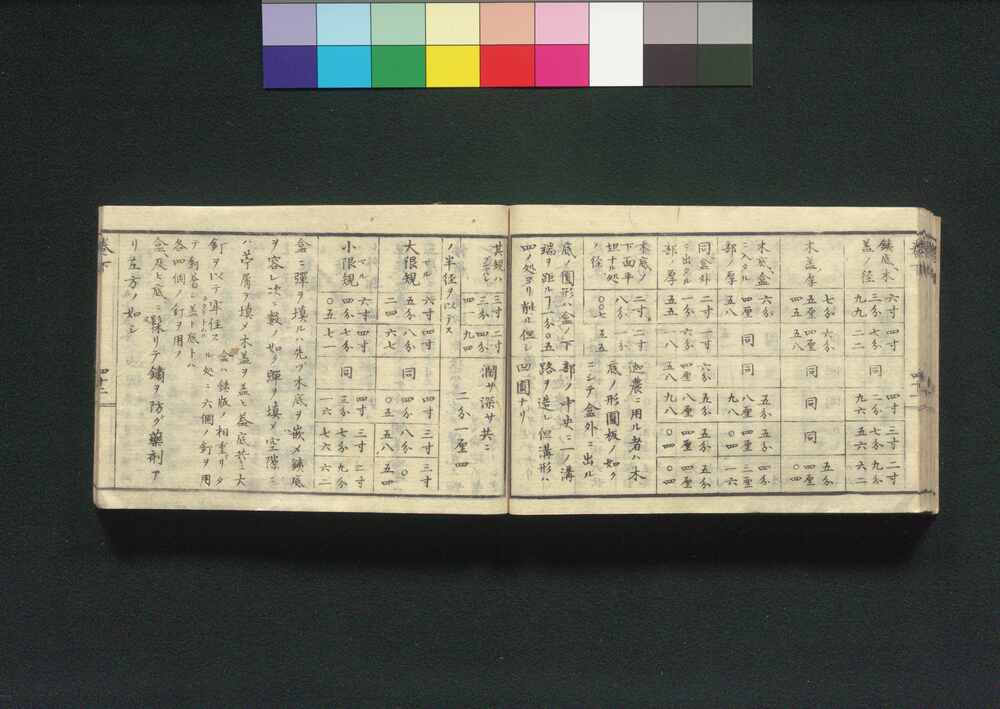 鉄底、木
蓋ノ径
六寸 三分 九九
四寸 七分 二二
同
四寸 二分 九六
三寸 七分 五六
二寸 九分 六二
木蓋厚
七分 五厘 四五
六分 五厘 五八
同
同
同
五分 四厘 〇四
木底、盒
ニ入タル
部ノ厚
六分 四厘 五八
同
同
五分 八厘 九八
五分 四厘 〇四
四分 三厘 一六
同盒外
ニ出タル
部ノ厚
二寸 一分 五五
一寸 一分 一八
六分 四厘 五八
五分 八厘 九八
五分 四厘 〇四
五分 四厘 〇四
木底ノ
下面平
坦ナル処
ノ径
二寸 八分 〇〇七
二寸 一分 五五
迦農ニ用ル者ハ木
底ノ形圓板ノ如ク
ニシテ盒外ニ出ル
底ノ圓形ハ盒ノ下部ノ中央ニ一ノ溝
端ヲ距ル丁一分〇五路ヲ造レ但溝形ハ
四ノ処ヨリ削ル但レ凹圓ナリ
其規ハ
三寸 三分 四一
二寸 四分 九四
濶サ深サ共ニ
二分一厘四
ノ半径ヲ以テス
大限規
六寸 五分 二四
四寸 八分 六七
同
四寸 四分 〇五
三寸 八分 五八
三寸 〇 五四
小限規
六寸 四分 〇五
四寸 七分 七一
同
四寸 三分 一六
三寸 七分 七六
二寸 九分 六二
盒ニ彈ヲ填ルハ先ツ木底ヲ嵌メ鉄底
ヲ容レ次ニ數ノ如ク彈ヲ填メ空隙ニ
ハ苧屑ヲ填メ木蓋ヲ蓋ヒ蓋底共ニ大
釘ヲ以テ牢住ス
盒ハ鉄版ノ相重リタ
ル処ニ六個ノ釘ヲ用
テ
蓋ト底トハ
各四個ノ釘ヲ用ノ
盒及ヒ底ニ髹リテ鏽ヲ防グ藥剤ア
リ左方ノ如シ
卷下
四十二